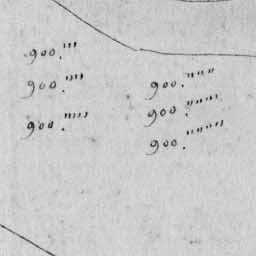 900.'''
900.''''
900.'''''
900.''''''
900.'''''''
900.''''''''